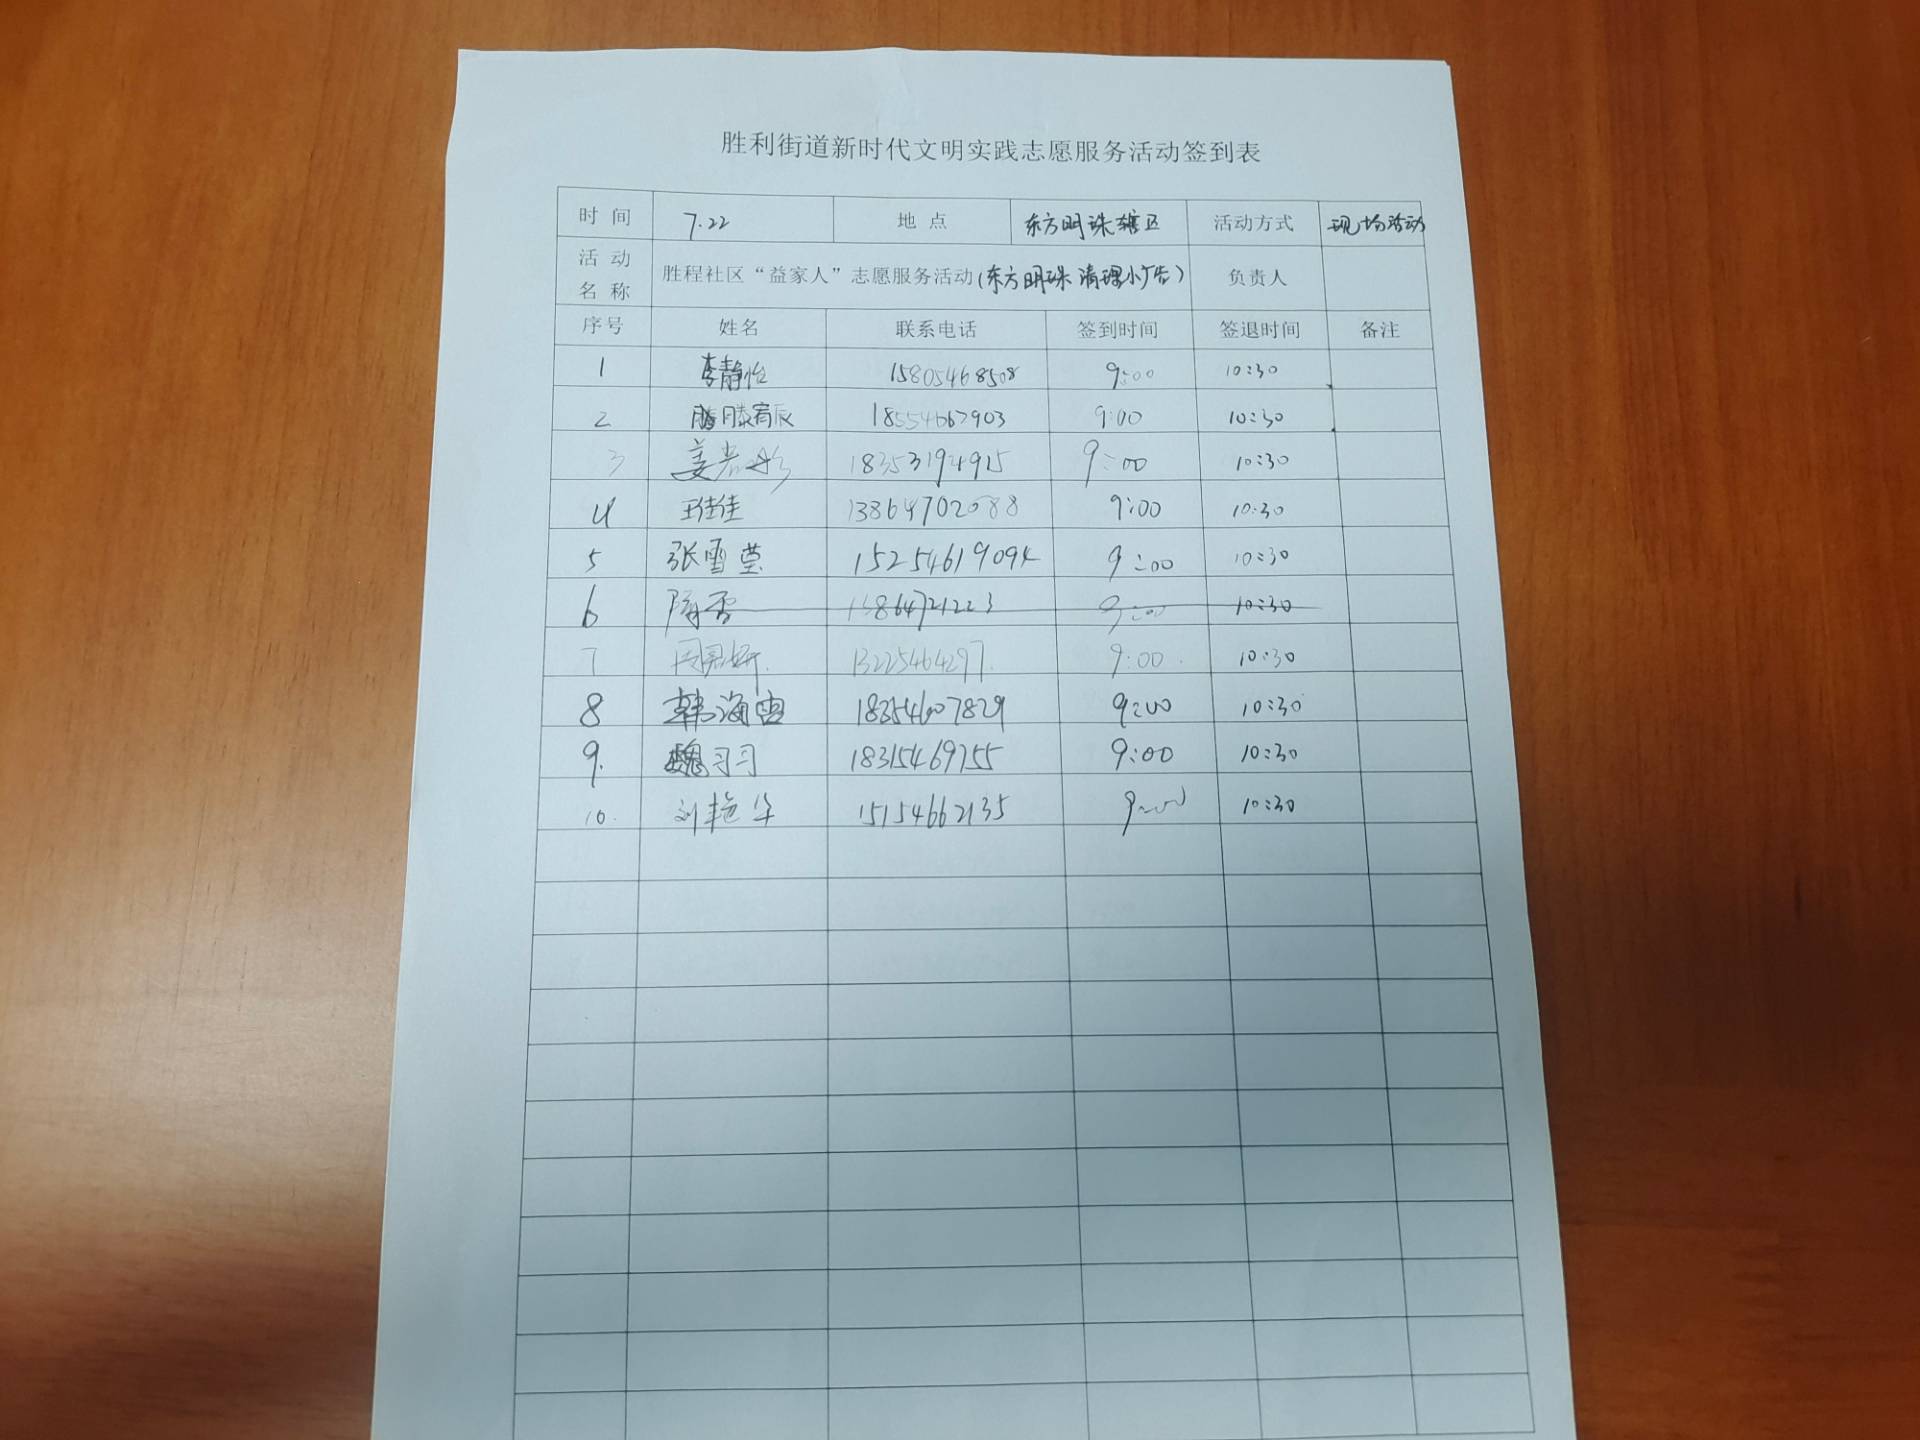 胜利街道新时代文明实践志愿服务活动签到表
时 间 7.22 地 点 东方明珠辖区 活动方式 现场活动
活 动 名 称 胜程社区“益家人”志愿服务活动(东方明珠 清理小广告) 负责人
序号 姓名 联系电话 签到时间 签退时间 备注
1 李静怡 15805468508 9:00 10:30
2 滕宥辰 18554667903 9:00 10:30
3 姜 18353194915 9:00 10:30
4 王佳佳 13864702088 9:00 10:30
5 张雪莹 15254619094 9:00 10:30
6 9:00 10:30
7 13225464297. 9:00. 10:30
8 韩海 18354607829 9:00 10:30
9. 魏习习 18315469755 9:00 10:30
10. 刘艳华 15154662135 9:00 10:30